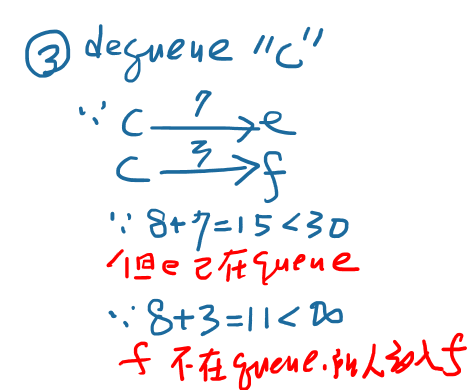 ③ dequeue "c"
∵ c 7→ e
c 3→ f
∵ 8+7=15<30
但e已在queue
∵ 8+3=11<∞
f 不在queue.所以加入f